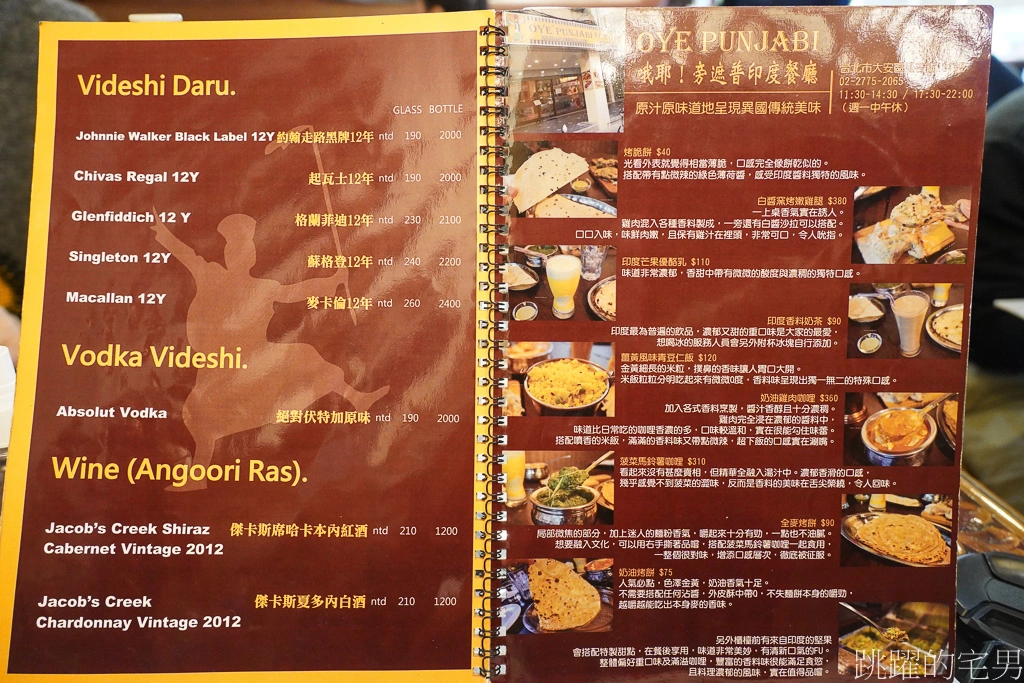 Videshi Daru.
GLASS BOTTLE
Johnnie Walker Black Label 12Y 約翰走路黑牌12年 ntd 190 2000
Chivas Regal 12Y 起瓦士12年 ntd 190 2000
Glenfiddich 12 Y 格蘭菲迪12年 ntd 230 2100
Singleton 12Y 蘇格登12年 ntd 240 2200
Macallan 12Y 麥卡倫12年 ntd 260 2400
Vodka Videshi.
Absolut Vodka 絕對伏特加原味 ntd 190 2000
Wine (Angoori Ras).
Jacob's Creek Shiraz 傑卡斯席哈卡本內紅酒 ntd 210 1200
Cabernet Vintage 2012
Jacob's Creek 傑卡斯夏多內白酒 ntd 210 1200
Chardonnay Vintage 2012
OYE PUNJABI
OYE PUNJABI
哦耶！旁遮普印度餐廳
原汁原味道地呈現異國傳統美味
台北市大安區
02-2775-2065
11:30-14:30 / 17:30-22:00
（週一中午休）
烤脆餅 $40
光看外表就覺得相當薄脆，口感完全像餅乾似的。
搭配帶有點微辣的綠色薄荷醬，感受印度醬料獨特的風味。
白醬窯烤嫩雞腿 $380
一上桌香氣實在誘人。
雞肉混入各種香料製成，一旁還有白醬沙拉可以搭配。
口口入味，味鮮肉嫩，且保有雞汁在裡頭，非常可口，令人吮指。
印度芒果優酪乳 $110
味道非常濃郁，香甜中帶有微微的酸度與濃稠的獨特口感。
印度香料奶茶 $90
印度最為普遍的飲品，濃郁又甜的重口味是大家的最愛，
想喝冰的服務人員會另外附杯冰塊自行添加。
薑黃風味青豆仁飯 $120
金黃細長的米粒，撲鼻的香味讓人胃口大開。
米飯粒粒分明吃起來有微微Q度，香料味呈現出獨一無二的特殊口感。
奶油雞肉咖哩 $360
加入各式香料烹製，醬汁香醇且十分濃稠。
雞肉完全浸在濃郁的醬料中，
味道比日常吃的咖哩香濃的多，口味較溫和，實在很能勾住味蕾。
搭配噴香的米飯，滿滿的香料味又帶點微辣，超下飯的口感實在涮嘴。
菠菜馬鈴薯咖哩 $310
看起來沒有甚麼賣相，但精華全融入湯汁中。濃郁香滑的口感，
幾乎感覺不到菠菜的澀味，反而是香料的美味在舌尖縈繞，令人回味。
全麥烤餅 $90
局部微焦的部分，加上迷人的麵粉香氣，嚼起來十分有勁，一點也不油膩。
想要融入文化，可以用右手撕著品嚐，搭配菠菜馬鈴薯咖哩一起食用，
一整個很對味，增添口感層次，徹底被征服。
奶油烤餅 $75
人氣必點，色澤金黃，奶油香氣十足。
不需要搭配任何沾醬，外皮酥中帶Q，不失麵餅本身的嚼勁，
越嚼越能吃出本身麥的香味。
另外櫃檯前有來自印度的堅果
會搭配特製甜點，在餐後享用，味道非常美妙，有清新口氣的FU。
整體偏好重口味及滿溢咖哩，豐富的香料味很能滿足食慾，
且料理濃郁的風味，實在值得品嚐。
跳躍的宅男